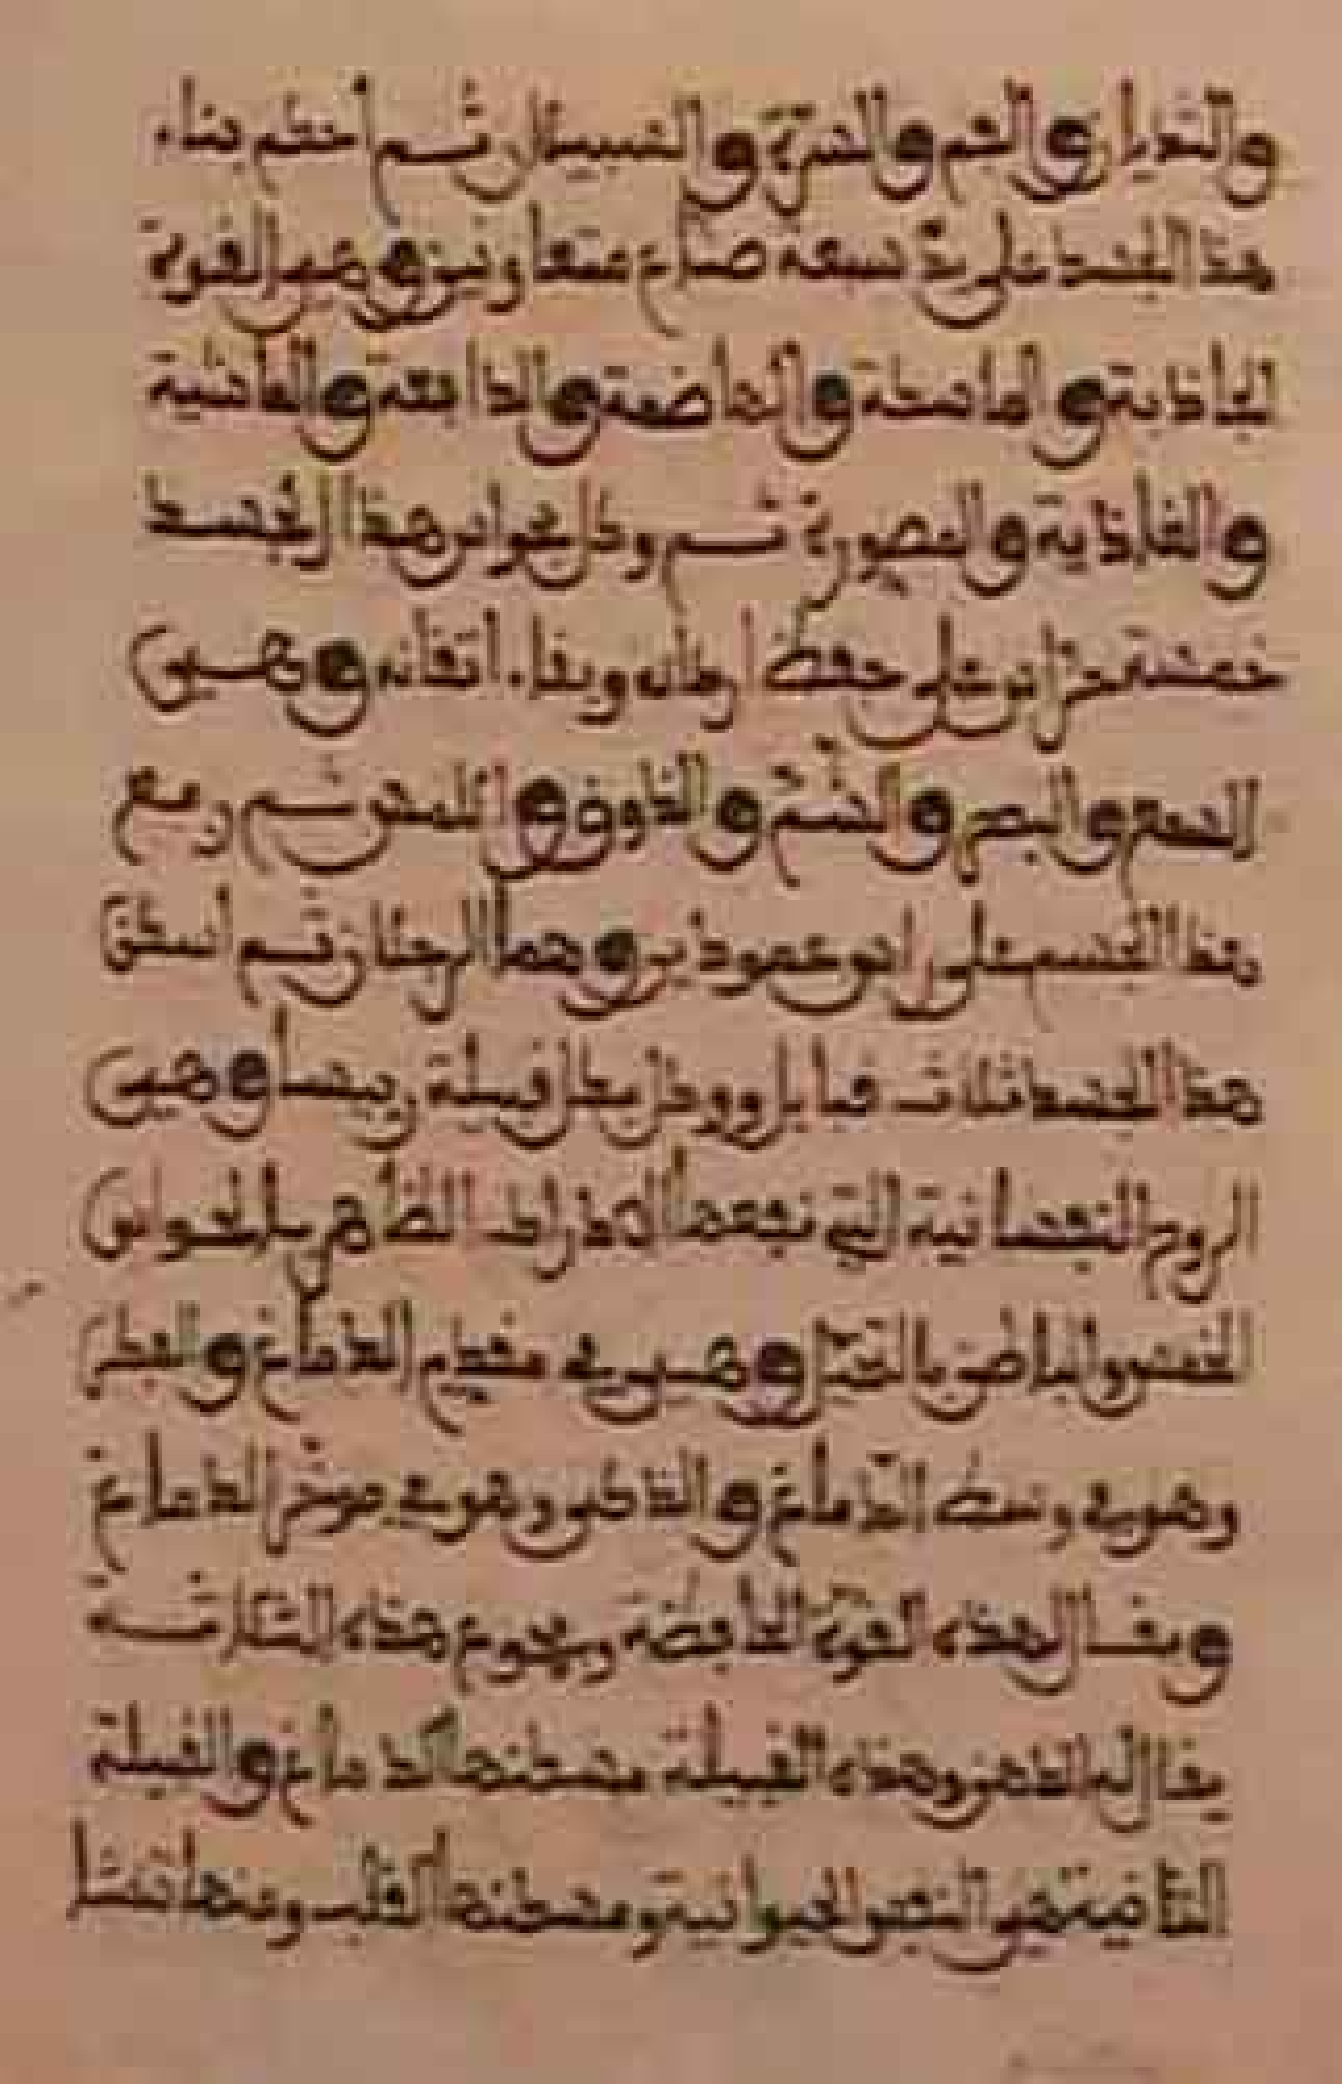 والتعديل والشم والشربة والنسيان ثم أحكم بناء
هذا الجسد على يد سبعة صناع متعاونين وهي القوة
الجاذبة والماسكة والهاضمة والدافعة والناشية
والغاذية والمصورة ثم وكل بحواس هذا الجسد
خمسة حراس على حفظ أركانه وبقاء اتقانه وهي
السمع والبصر والشم والذوق واللمس ثم رفع
هذا الجسم على رأس عمودين وهما الرجلان ثم أسكن
هذا الجسد ثلاث قبايل ووكل بكل قبيلة رييسا وهي
الروح النفسانية التي نبعها الادراك الظاهر بالحواس
الخمس والباطن بالتخيل وهي في مقدم الدماغ والفكر
وهو في وسط الدماغ والذكر وهو في موخر الدماغ
ويقال لهذه القوة الحافظة ومجموع هذه الثلاثة
يقال له الذهن وهذه القبيلة مسكنها الدماغ والقبيلة
الثانية هي النفس الحيوانية ومسكنها القلب ومنها تنشأ